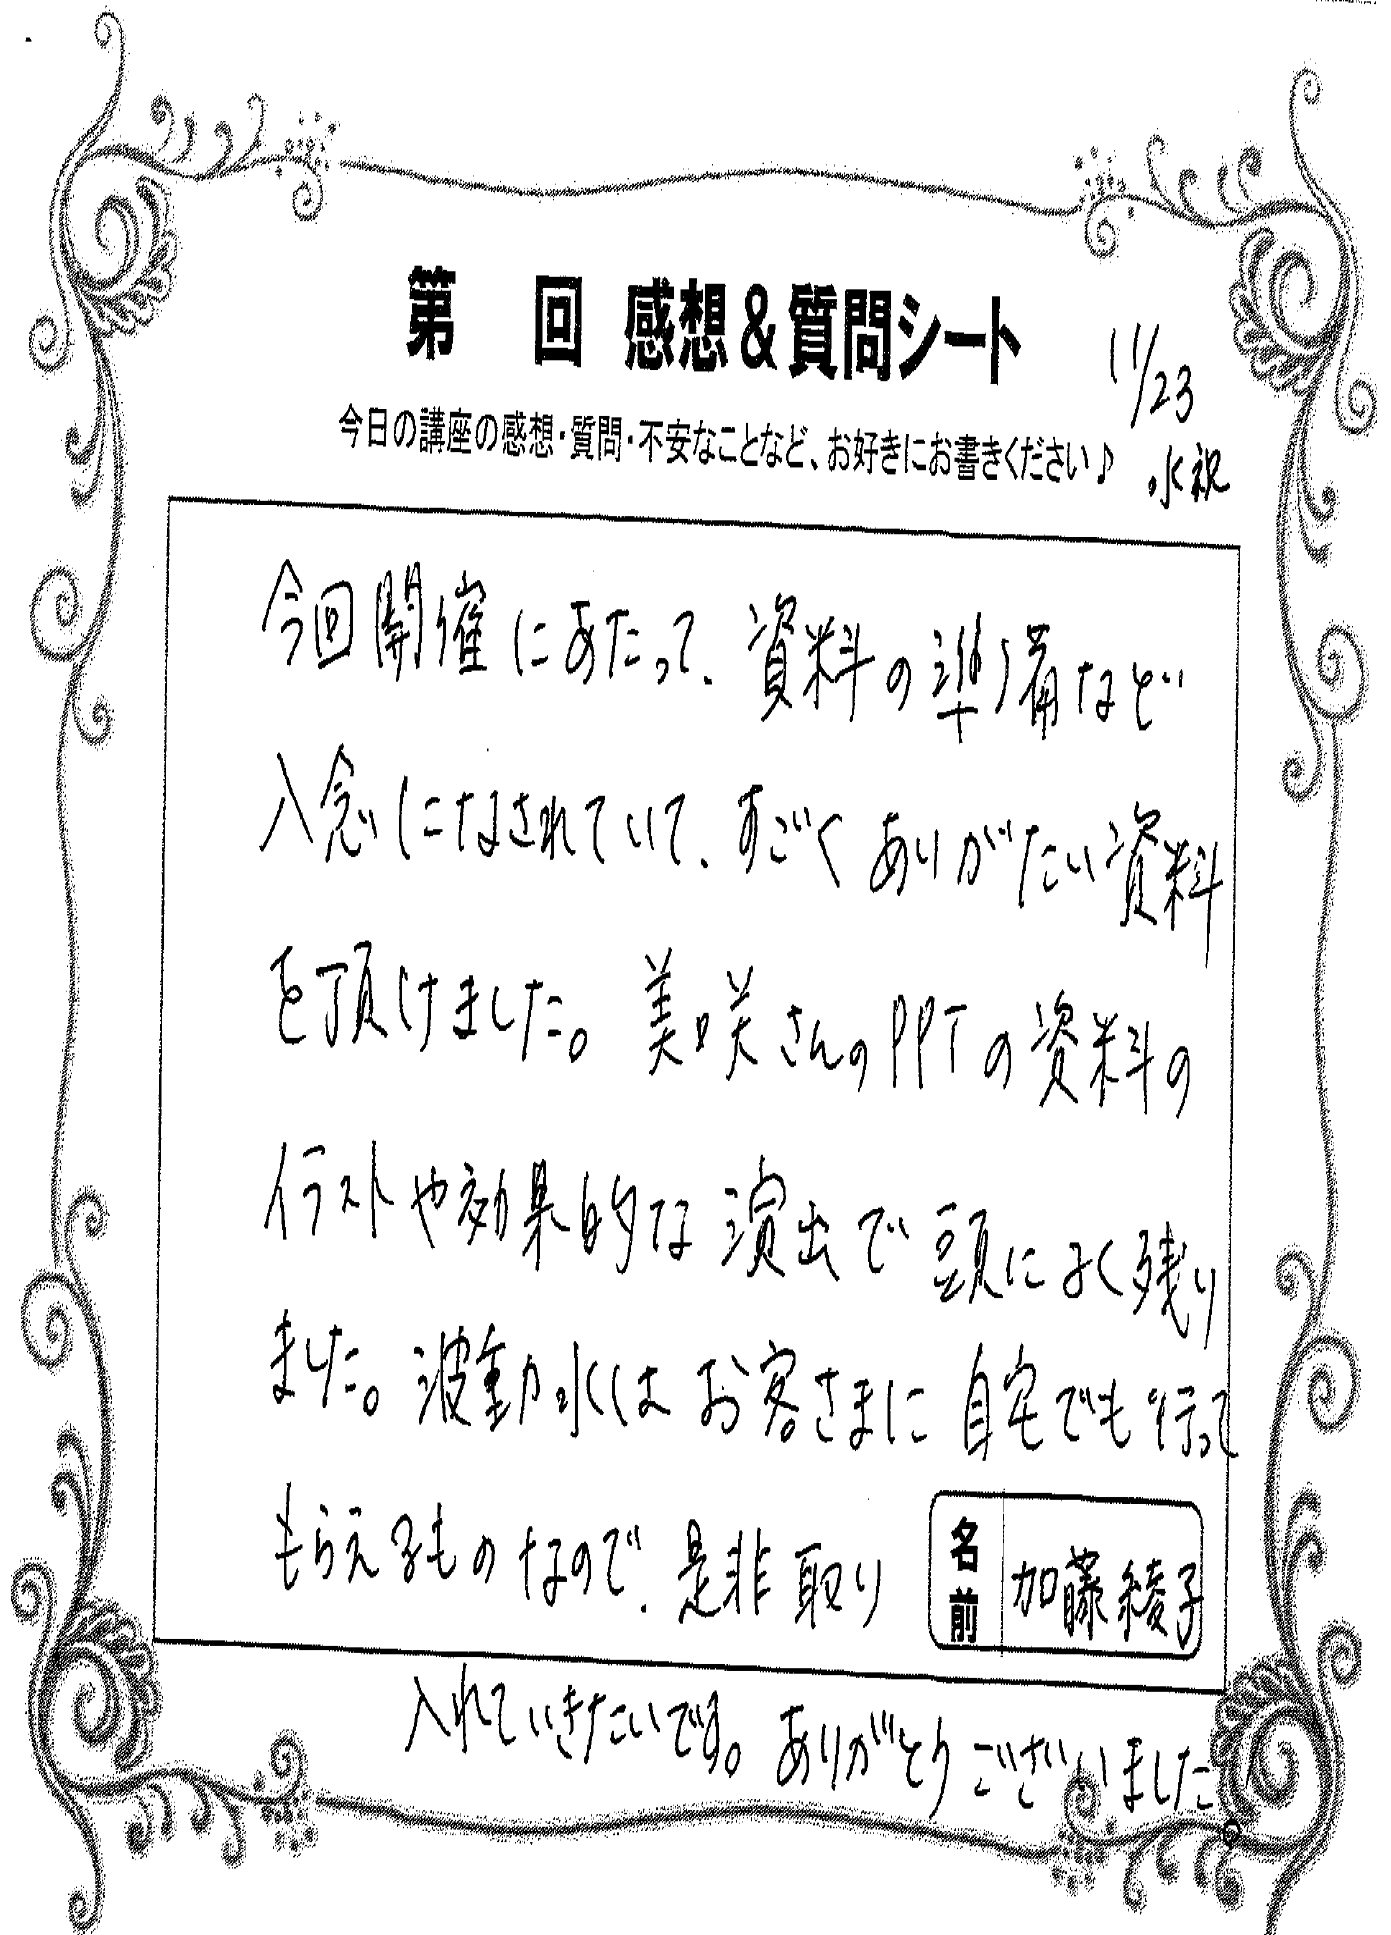 第　回 感想&質問シート
11/23
今日の講座の感想・質問・不安なことなど、お好きにお書きください♪
水祝
今回開催にあたって、資料の準備など
入念になされていて、すごくありがたい資料
を頂けました。美咲さんのPPTの資料の
イラストや効果的な演出で頭によく残り
ました。波動水はお客さまに自宅でも行って
もらえるものなので、是非取り
名前 加藤綾子
入れていきたいです。ありがとうございました。